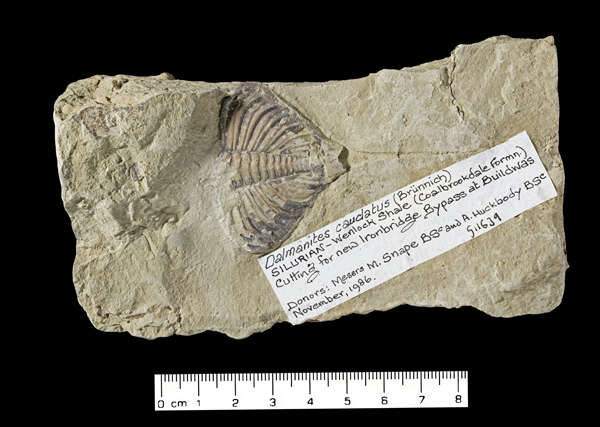 Dalmanites caudatus (Brünnich)
SILURIAN - Wenlock Shale (Coalbrookdale Formn.)
Cutting for new Ironbridge Bypass at Buildwas
Donors: Messrs M. Snape BSc and A. Huckbody BSc
November, 1986.
0 cm 1 2 3 4 5 6 7 8